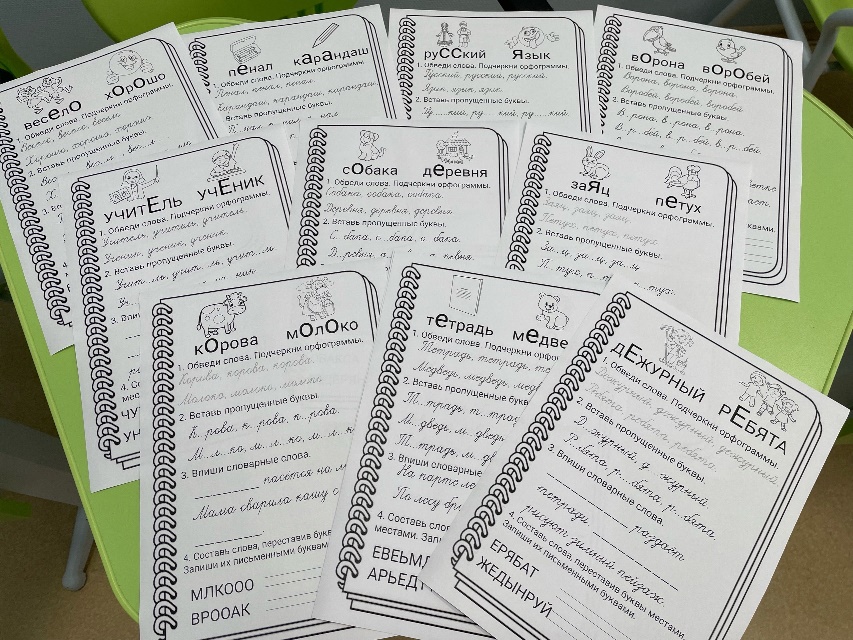 весеЛО хОрОшо
1. Обведи слова. Подчеркни орфограммы.
Весело, весело, весело.
Хорошо, хорошо, хорошо.
2. Вставь пропущенные буквы.
пЕнал кАрАндаш
1. Обведи слова. Подчеркни орфограммы.
Пенал, пенал, пенал.
Карандаш, карандаш, карандаш.
2. Вставь пропущенные буквы.
руССкий Язык
1. Обведи слова. Подчеркни орфограммы.
Русский, русский, русский.
Язык, язык, язык.
2. Вставь пропущенные буквы.
Ру.....кий, ру.....кий, ру.....кий.
вОрона вОрОбей
1. Обведи слова. Подчеркни орфограммы.
Ворона, ворона, ворона.
Воробей, воробей, воробей.
2. Вставь пропущенные буквы.
В..рона, в..рона, в..рона.
В..р..бей, в..р..бей, в..р..бей.
учитЕль учЕник
1. Обведи слова. Подчеркни орфограммы.
Учитель, учитель, учитель.
Ученик, ученик, ученик.
2. Вставь пропущенные буквы.
Учит...ль, учит...ль, учит...ль.
сОбака дЕревня
1. Обведи слова. Подчеркни орфограммы.
Собака, собака, собака.
Деревня, деревня, деревня.
2. Вставь пропущенные буквы.
С..бака, с..бака, с..бака.
заЯц пЕтух
1. Обведи слова. Подчеркни орфограммы.
Заяц, заяц, заяц.
Петух, петух, петух.
2. Вставь пропущенные буквы.
За..ц, за..ц, за..ц.
кОрова мОлОко
1. Обведи слова. Подчеркни орфограммы.
Корова, корова, корова.
Молоко, молоко, молоко.
2. Вставь пропущенные буквы.
К..рова, к..рова, к..рова.
М..л..ко, м..л..ко, м..л..к
3. Впиши словарные слова.
пасётся на л
Мама сварила кашу с
4. Составь слова, переставив буквы
Запиши их письменными буквами.
МЛКООО
ВРООАК
тЕтрадь мЕдве
1. Обведи слова. Подчеркни орфо
Тетрадь, тетрадь, те
Медведь, медведь, медв
2. Вставь пропущенные буквы.
Т...традь, т...трад
М...дведь, м...дведь
Т...традь, м...дв
3. Впиши словарные
На парте ле
По лесу бр
4. Составь сло
местами. Запи
ЕВЕЬМД
АРЬЕДТ
дЕжурный рЕбята
1. Обведи слова. Подчеркни орфограммы.
Дежурный, дежурный, дежурный
Ребята, ребята, ребята.
2. Вставь пропущенные буквы.
Д...журный, д...журный
Р...бята, р...бята.
3. Впиши словарные слова.
раздаёт
тетради
рисуют зимний пейзаж.
4. Составь слова, переставив буквы местами.
Запиши их письменными буквами.
ЕРЯБАТ
ЖЕДЫНРУЙ